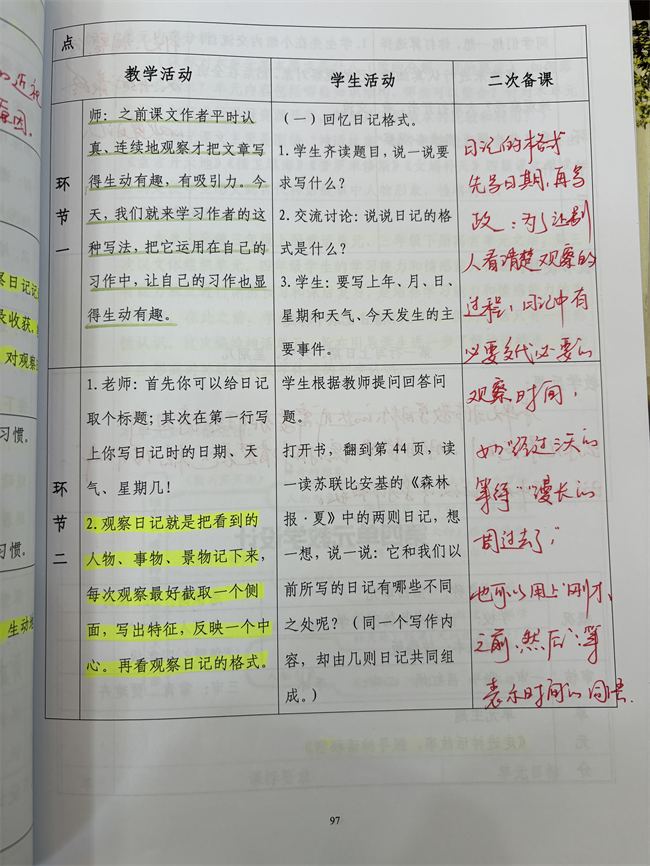 点
教学活动
学生活动
二次备课
环节一
师：之前课文作者平时认
真、连续地观察才把文章写
得生动有趣，有吸引力。今
天，我们就来学习作者的这
种写法，把它运用在自己的
习作中，让自己的习作也显
得生动有趣。
（一）回忆日记格式。
1.学生齐读题目，说一说要
求写什么？
2.交流讨论：说说日记的格
式是什么？
3.学生：要写上年、月、日、
星期和天气、今天发生的主
要事件。
日记的格式
先写日期，再写
为了让别
人看清楚观察的
过程，日记中有
必要交代必要的
观察时间，
如"经过三天的
等待""漫长的
周过去了"
也可以用上"刚才，
之前、然后"等
表示时间的词语。
环节二
1.老师：首先你可以给日记
取个标题；其次在第一行写
上你写日记时的日期、天
气、星期几！
2.观察日记就是把看到的
人物、事物、景物记下来，
每次观察最好截取一个侧
面，写出特征，反映一个中
心。再看观察日记的格式。
学生根据教师提问回答问
题。
打开书，翻到第 44 页，读
一读苏联比安基的《森林
报·夏》中的两则日记，想
一想，说一说：它和我们以
前所写的日记有哪些不同
之处呢？（同一个写作内
容，却由几则日记共同组
成。）
原因.
察日记
录收获，
对观察
习惯。
习惯。
生动
97